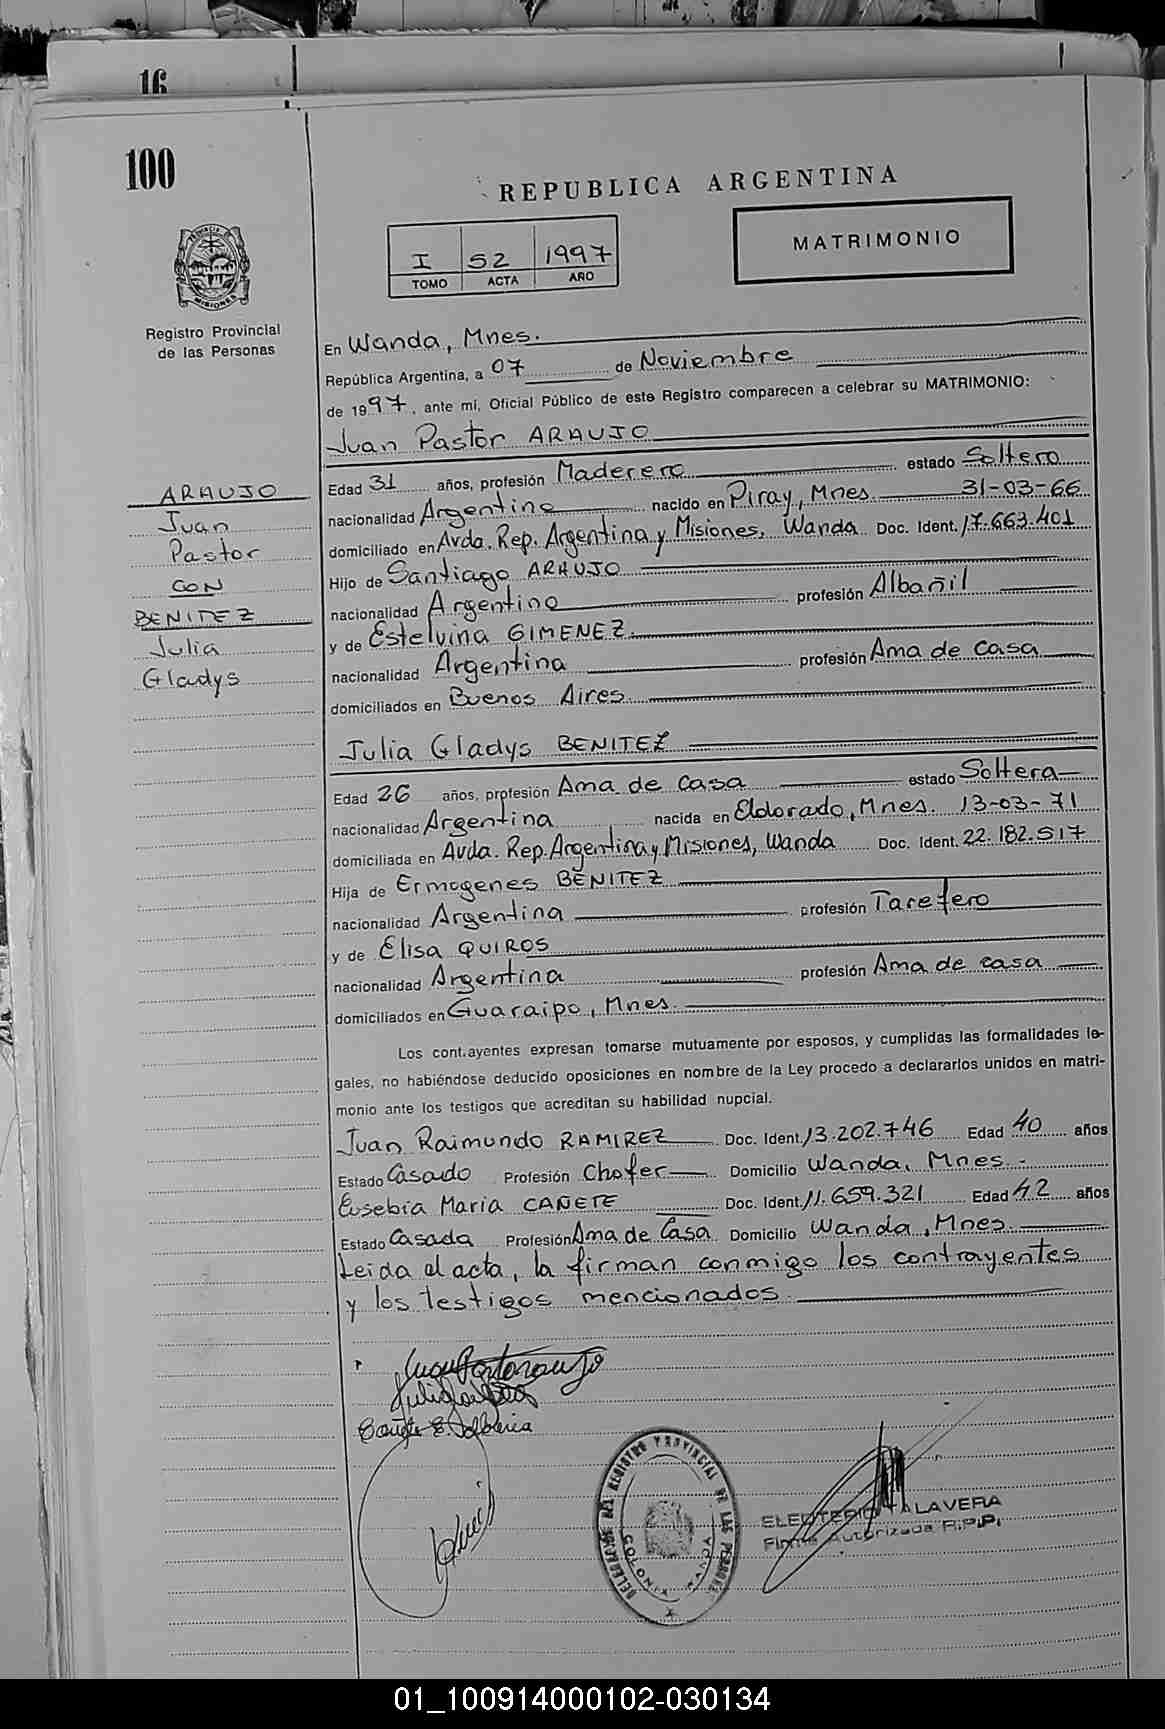 16
100
REPUBLICA ARGENTINA
I 52 1997
TOMO ACTA AÑO
MATRIMONIO
PROVINCIA DE MISIONES
Registro Provincial
de las Personas
En Wanda, Mnes.
República Argentina, a 07 de Noviembre
de 1997, ante mí, Oficial Público de este Registro comparecen a celebrar su MATRIMONIO:
Juan Pastor ARAUJO
Edad 31 años, profesión Maderero estado Soltero
nacionalidad Argentino nacido en Piray, Mnes. 31-03-66
domiciliado en Avda. Rep. Argentina y Misiones, Wanda Doc. Ident. 17.663.401
Hijo de Santiago ARAUJO
nacionalidad Argentino profesión Albañil
y de Estelvina GIMENEZ.
nacionalidad Argentina profesión Ama de casa
domiciliados en Buenos Aires.
ARAUJO
Juan
Pastor
CON
BENITEZ
Julia
Gladys
Julia Gladys BENITEZ
Edad 26 años, profesión Ama de casa estado Soltera
nacionalidad Argentina nacida en Eldorado, Mnes. 13-03-71
domiciliada en Avda. Rep. Argentina y Misiones, Wanda Doc. Ident. 22.182.517
Hija de Ermogenes BENITEZ
nacionalidad Argentina profesión Tarefero
y de Elisa QUIROS
nacionalidad Argentina profesión Ama de casa
domiciliados en Guaraipo, Mnes.
Los contrayentes expresan tomarse mutuamente por esposos, y cumplidas las formalidades le-
gales, no habiéndose deducido oposiciones en nombre de la Ley procedo a declararlos unidos en matri-
monio ante los testigos que acreditan su habilidad nupcial.
Juan Raimundo RAMIREZ Doc. Ident. 13.202.746 Edad 40 años
Estado Casado Profesión Chofer Domicilio Wanda, Mnes.
Eusebia Maria CAÑETE Doc. Ident. 11.659.321 Edad 42 años
Estado Casada Profesión Ama de Casa Domicilio Wanda, Mnes.
Leida el acta, la firman conmigo los contrayentes
y los testigos mencionados.
DELEGACION DEL REGISTRO PROVINCIAL DE LAS PERSONAS
COLONIA WANDA
ELEUTERIO TALAVERA
Firma Autorizada R.P.P.
01_100914000102-030134